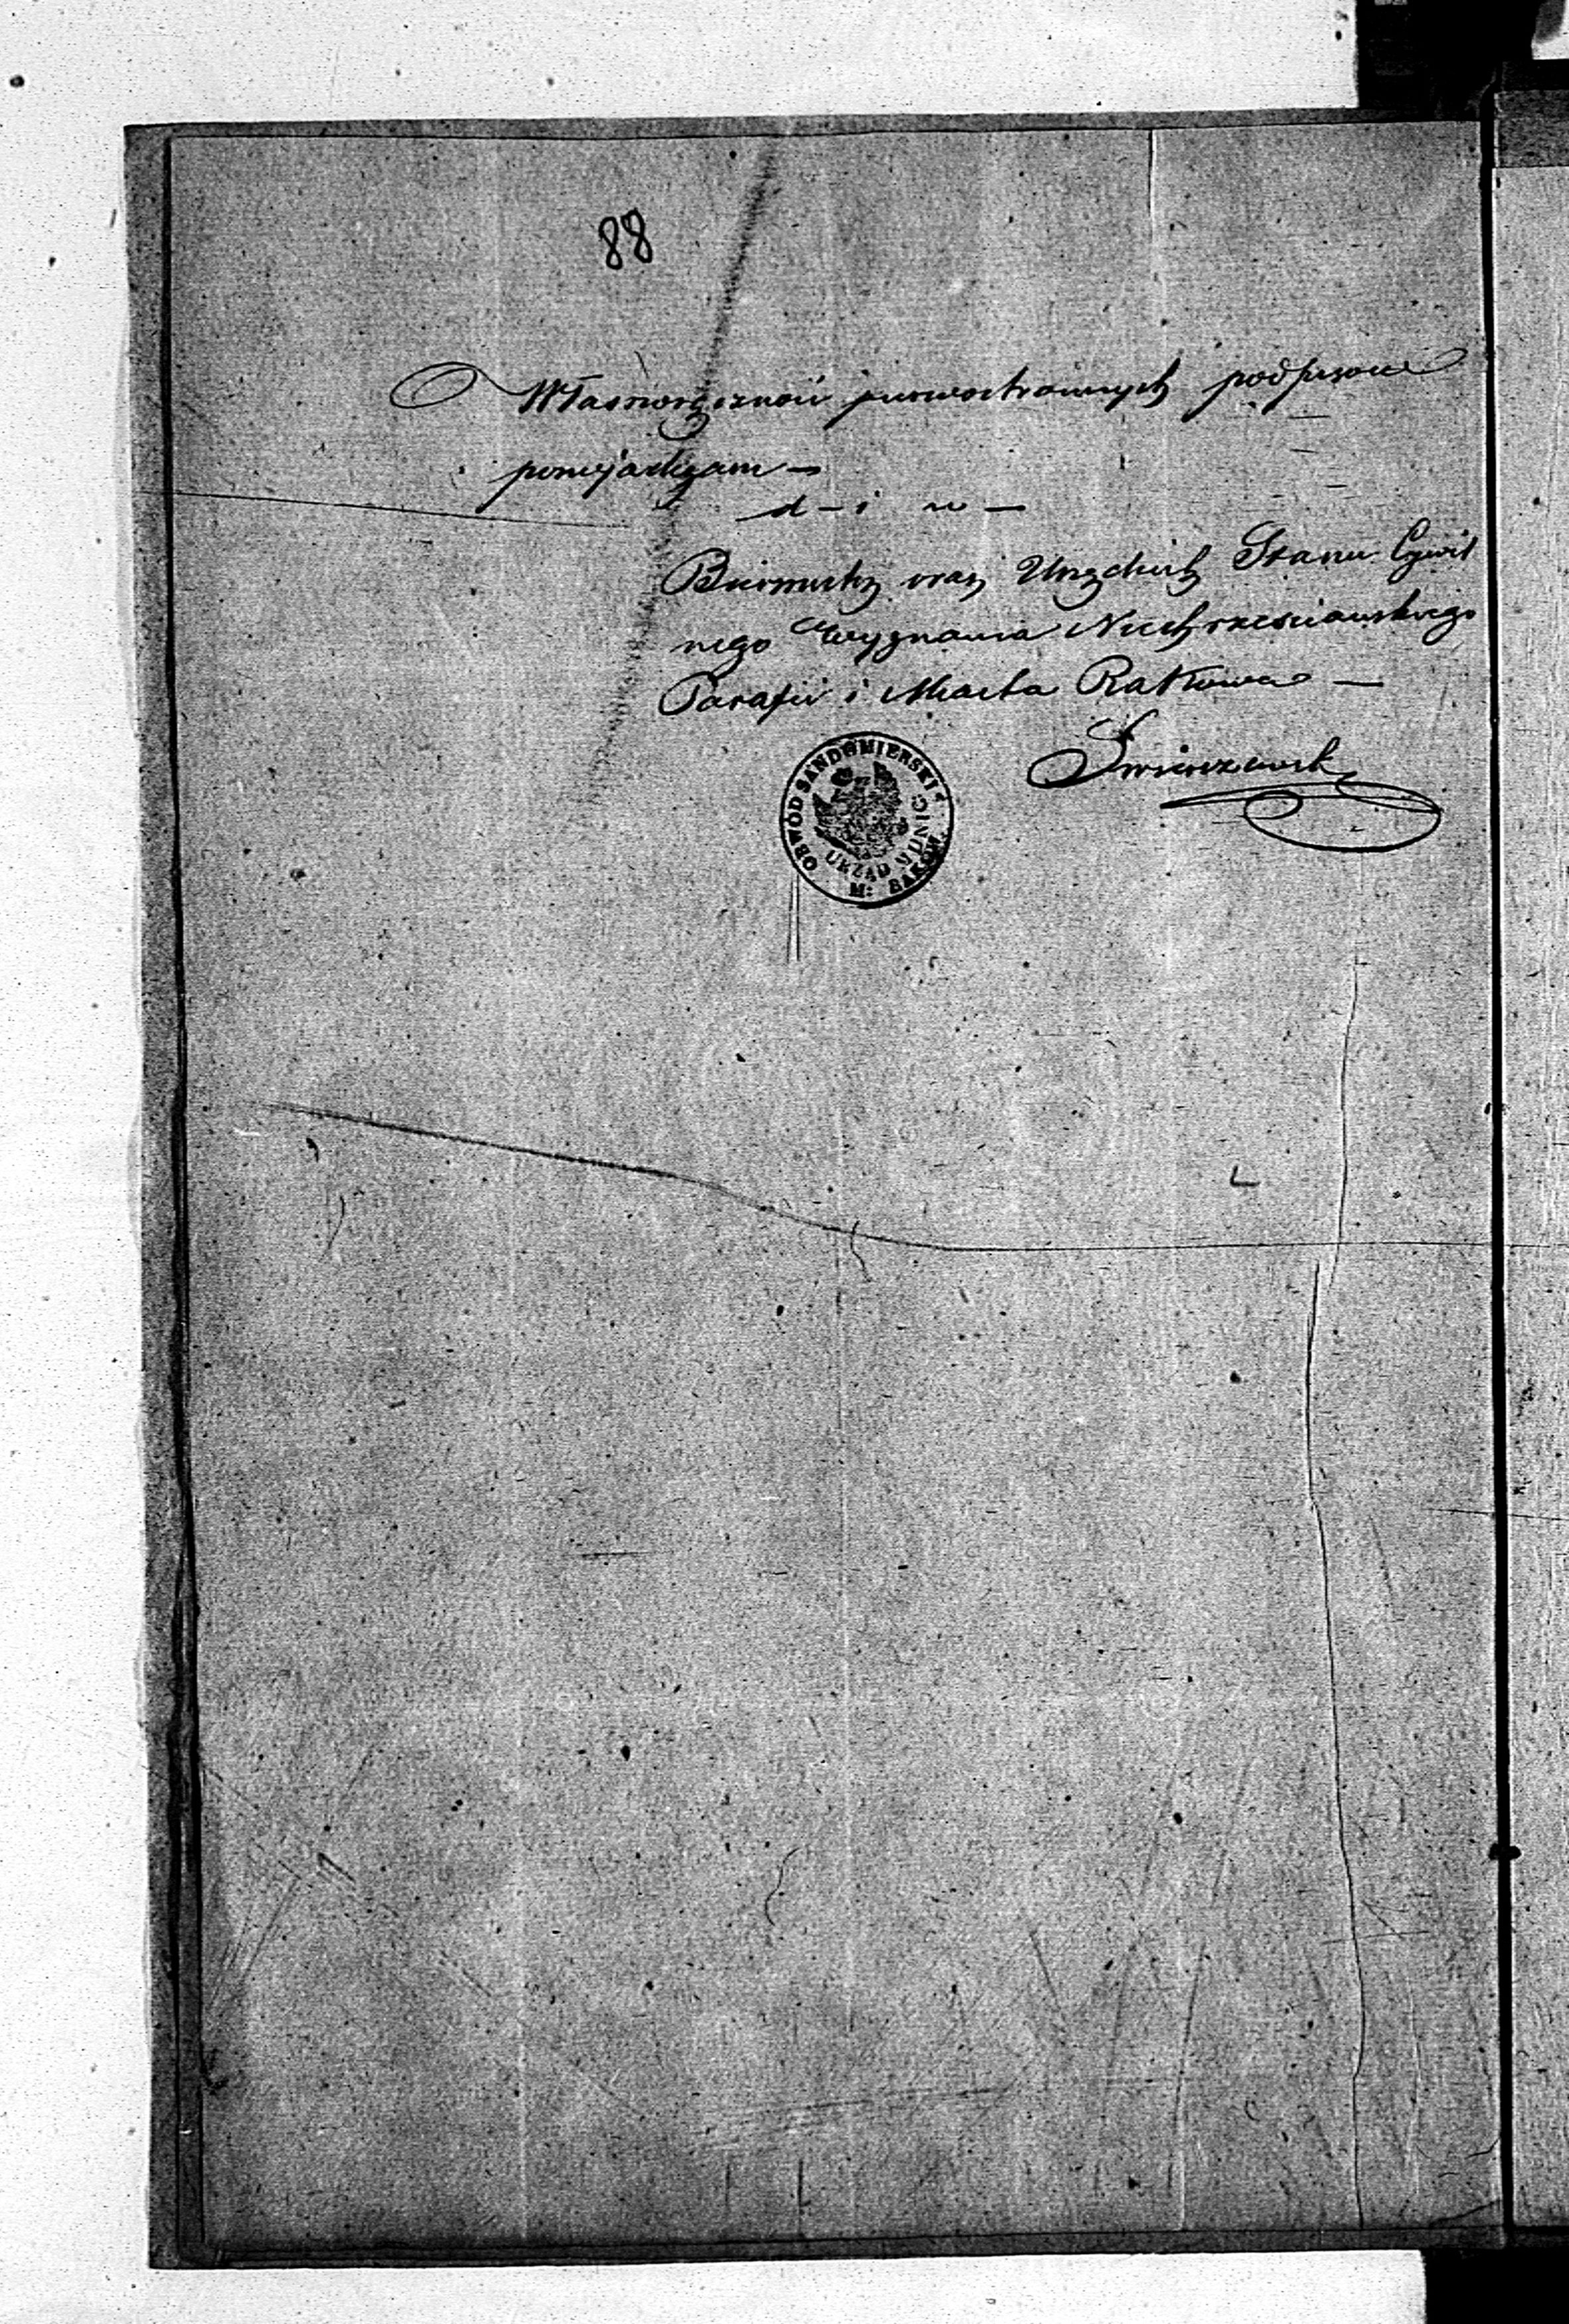 88
Własnoręcznosć pierwostronnych podpisow
poswjadczam —
d – i w —
Burmistrz oraz Urzędnik Stanu Cywil
nego Wyznania Niechrzesciańskiego
Parafii i Miasta Rakowa —
OBWÓD SANDOMIERSKI
URZĄD MUNIC
M: RAKOW